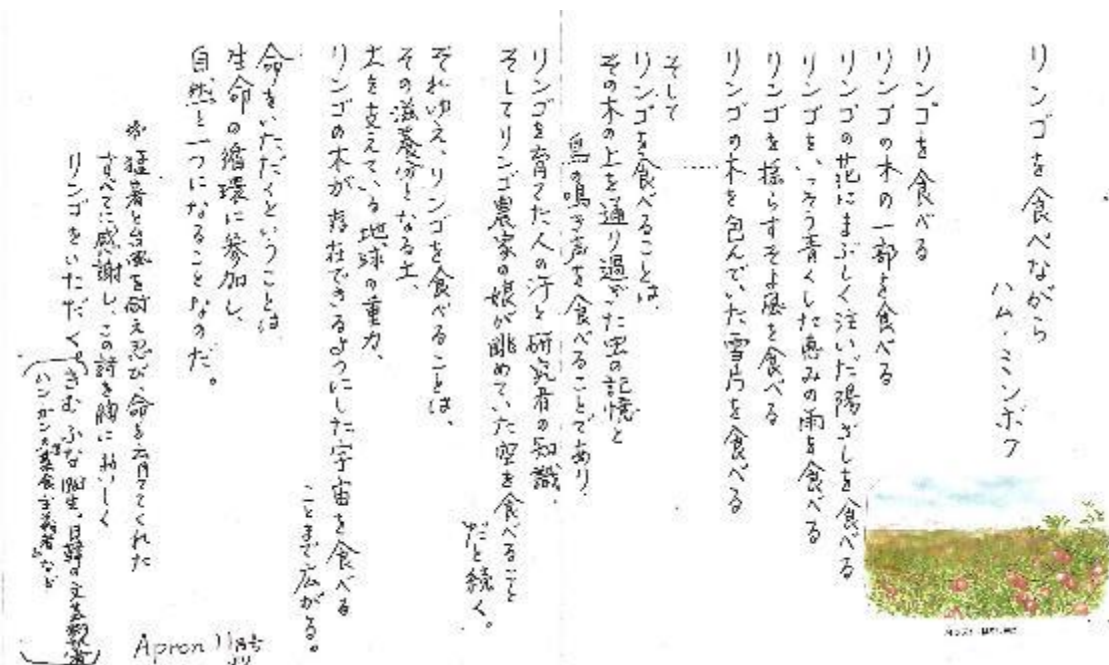 リンゴを食べながら
ハム・ミンボク
リンゴを食べる
リンゴの木の一部を食べる
リンゴの花にまぶしく注いだ陽ざしを食べる
リンゴを、いっそう青くした恵みの雨を食べる
リンゴを揺らすそよ風を食べる
リンゴの木を包んでいた雪片を食べる
そして
リンゴを食べることは、
その木の上を通り過ぎた雲の記憶と
鳥の鳴き声を食べることであり、
リンゴを育てた人の汗と研究者の知識、
そしてリンゴ農家の娘が眺めていた空を食べること
だと続く。
それゆえ、リンゴを食べることは、
その滋養分となる土、
土を支えている地球の重力、
リンゴの木が存在できるようにした宇宙を食べる
ことまで広がる。
命をいただくということは、
生命の循環に参加し、
自然と一つになることなのだ。
*猛暑と台風を耐え忍び、命を育ててくれた
すべてに感謝し、この詩を胸においしく
リンゴをいただく。
(きむ ふな 生、日韓の文芸翻訳者
ハンガン"菜食主義者"など)
Apron 11月号